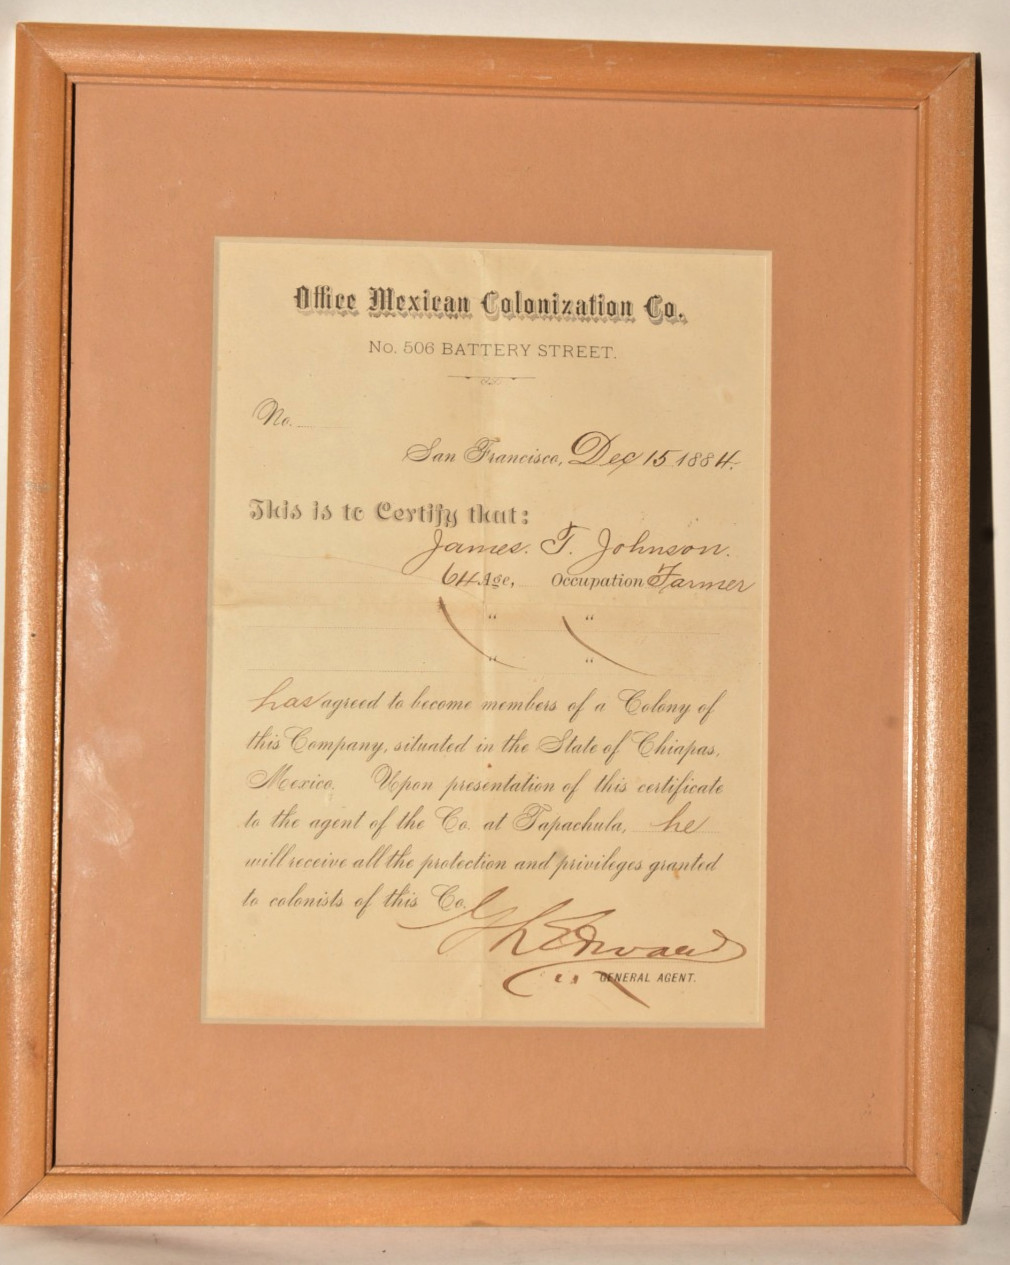 Office Mexican Colonization Co.
No. 506 BATTERY STREET.
No.
San Francisco, Dec 15 1884.
This is to Certify that:
James. T. Johnson.
64 Age, Occupation Farmer
“ “
“ “
has agreed to become members of a Colony of
this Company, situated in the State of Chiapas,
Mexico. Upon presentation of this certificate
to the agent of the Co. at Tapachula, he
will receive all the protection and privileges granted
to colonists of this Co.
GENERAL AGENT.